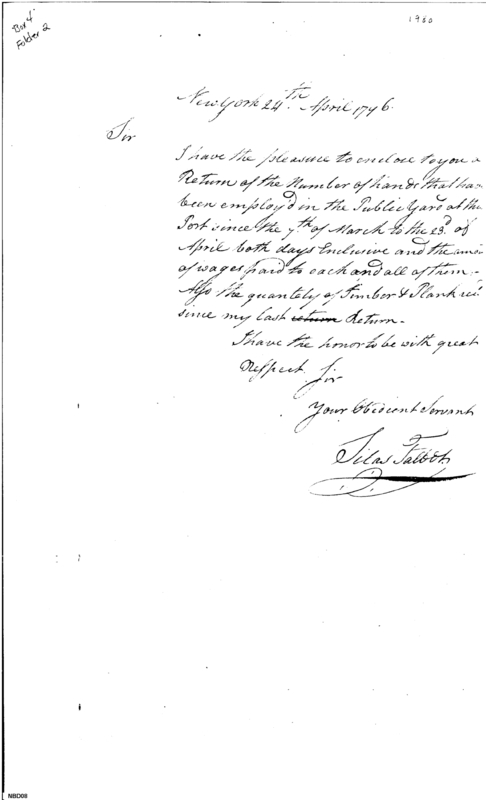 Box 4
Folder 2
1980
New York 24th April 1796.
Sir
I have the pleasure to enclose to you a
Return of the Number of hands that has
been employ'd in the Public Yard at the
Port since the 7th of March to the 23d of
April both days Enclusive and the amo
of wages paid to each and all of them,-
Also the quantety of Timber & Plank rec
since my last return Return-
I have the honor to be with great
Respect Sir
Your Obedient Servant
Silas Talbot
NBD08